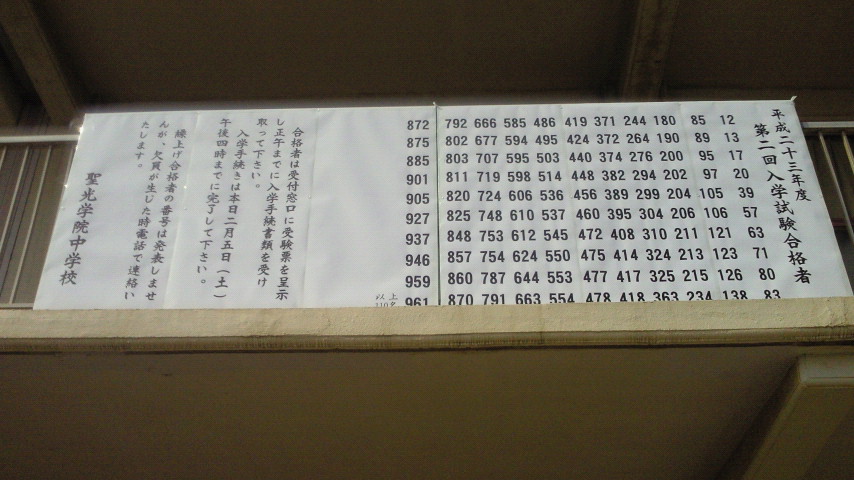 平成二十三年度
第二回入学試験合格者
12 13 17 20 39 57 63 71 80 83
85 89 95 97 105 106 121 123 126 138
180 190 200 202 204 206 211 213 215 234
244 264 276 294 299 304 310 324 325 363
371 372 374 382 389 395 408 414 417 418
419 424 440 448 456 460 472 475 477 478
486 495 503 514 536 537 545 550 553 554
585 594 595 598 606 610 612 624 644 663
666 677 707 719 724 748 753 754 787 791
792 802 803 811 820 825 848 857 860 870
872 875 885 901 905 927 937 946 959 961
以上
110名
合格者は受付窓口に受験票を呈示
し正午までに入学手続書類を受け
取って下さい。
入学手続きは本日二月五日（土）
午後四時までに完了して下さい。
繰上げ合格者の番号は発表しませ
んが、欠員が生じた時電話で連絡い
たします。
聖光学院中学校